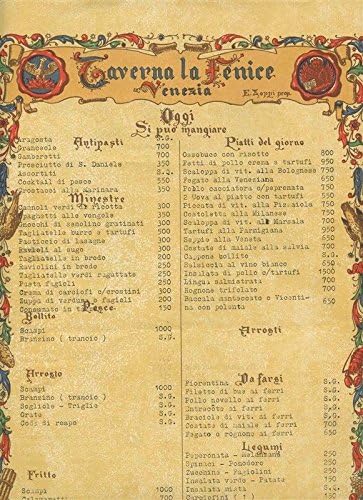 Taverna la Fenice
Venezia
E. Zoppi prop.
Oggi
Si può mangiare
Antipasti
Aragosta S.G.
Grancsole 700
Gamberetti 700
Prosciutto di S. Daniele 350
Assortiti S.G.
Cocktail di pesce 450
Crostacci alla Marinara 350
Minestre
Cannoli verdi di ricotta
Spagnetti alle vongole 350
Gnocchi di semolino gratinati 300
Tagliatelle burro e tartufi 500
Pasticcio di lasagne 300
Ravioli al sugo 300
Tagliatelle in brodo 200
Raviolini in brodo 250
Tagliatelle verdi pagottate 250
Pasta fagioli 250
Crema di carciofi c/crostini 300
Zuppa di verdura e fagioli 200
Consumato in
Pesce
Bollito
Scampi 1000
Branzino ( trancio ) S.G.
Arrosto
Scampi 1000
Branzino ( trancio ) S.G.
Sogliole - Triglie S.G.
Orata S.G.
Code di rospo S.G.
Fritto
Scampi 1000
Piatti del giorno
Ossobuco con risotto 800
Petti di pollo crema e tartufi 950
Scaloppa di vit. alla Bolognese 750
Fegato alla Veneziana 650
Pollo cacciatora c/peperonata 750
2 Uova al piatto con tartufi
Picenta di vit. alla Pizzaiola
Costoletta alla Milanese
Scaloppa di vit. alla Marsala
Tartufi alla Parmigiana
Seppie alla Veneta 650
Costate di maiale alla salvia
Cappone bollito S.G.
Salsiccia al vino bianco 550
Insalata di pollo c/tartufi 1500
Lingua salmistrata 700
Rognone trifolato 700
Baccala mantecato c Vicentina con polenta 650
Arrosti
Da farsi
Fiorentina S.G.
Filetto di bue ai ferri S.G.
Pollo novello ai ferri S.G.
Entrecôte ai ferri S.G.
Braciole di vit. ai ferri S.G.
Costate di maiale ai ferri 750
Fegato o rognone ai ferri 650
Legumi
Peperonata - Melanzane 250
Spinaci - Pomodoro
Zucchini - Fagiolini
Patate
Insalata mista
Insalata